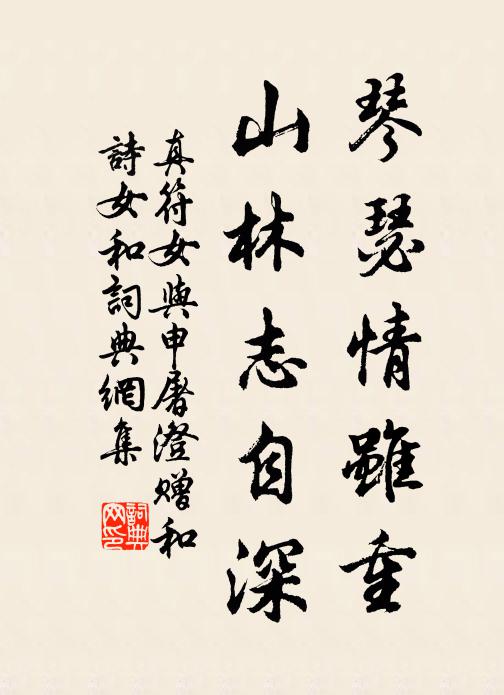 琴瑟情雖重
山林志自深
真符女與申屠澄贈和
詩女和詞典網集
詞典
网印